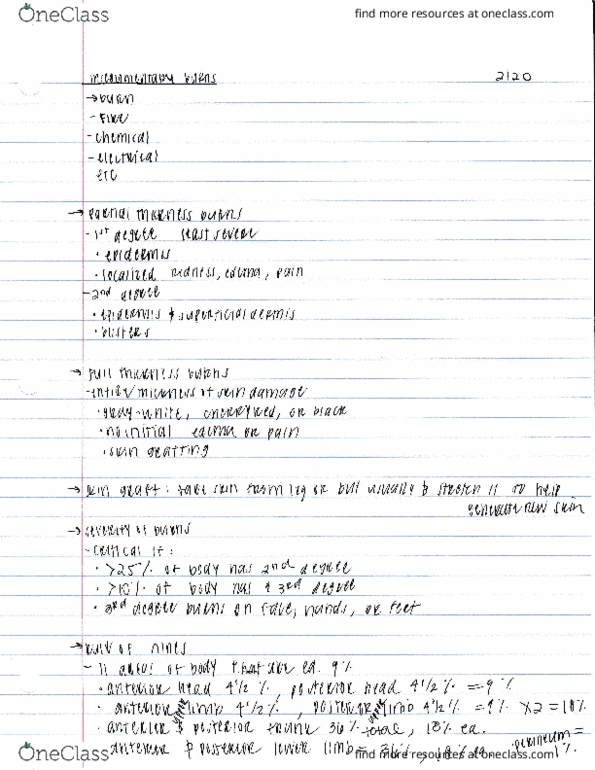 OneClass
find more resources at oneclass.com
integumentary burns 2120
→ burn
- Fire
- chemical
- electrical
etc
→ partial thickness burns
- 1st degree least severe
• epidermis
• localized redness, edema, pain
- 2nd degree
• epidermis & superficial dermis
• blisters
→ full thickness burns
- entire thickness of skin damage
• gray-white, cherry red, or black
• no initial edema or pain
• skin grafting
→ skin graft: take skin from leg or but usually & stretch it to help
generate new skin
→ severity of burns
- critical if:
• >25% of body has 2nd degree
• >10% of body has a 3rd degree
• 3rd degree burns on face, hands, or feet
→ rule of nines
- 11 areas of body that are ea. 9%
• anterior head 4 1/2 %, posterior head 4 1/2 % = 9 %
• anterior upper limb 4 1/2 %, posterior upper limb 4 1/2 % = 9% x2 = 18%
• anterior & posterior trunk 36% total, 18% ea.
anterior & posterior lower limb = 36% 18% ea. perineum = 1%
OneClass
find more resources at oneclass.com